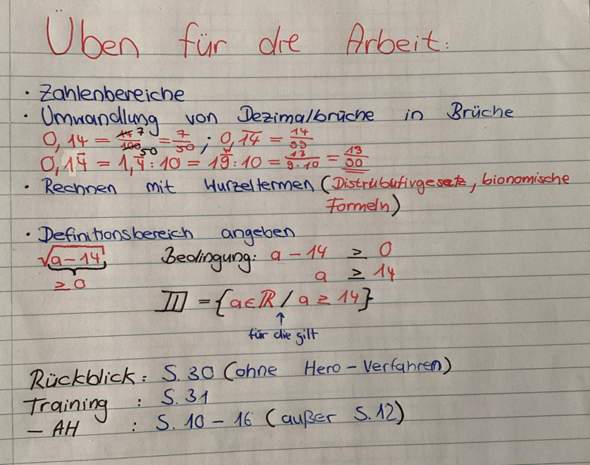 Üben für die Arbeit:
· Zahlenbereiche
· Umwandlung von Dezimalbrüche in Brüche
0,14 = 14/100 7/50 = 7/50 ; 0,1̅4̅ = 14/99
0,14̅ = 1,4̅ : 10 = 1 4/9 : 10 = 13/9·10 = 13/90
· Rechnen mit Wurzeltermen (Distrubutivgesetz, bionomische
Formeln)
· Definitionsbereich angeben
√a-14 Bedingung: a - 14 ≥ 0
≥ 0 a ≥ 14
𝔻 = {a∈ℝ / a ≥ 14}
↑
für die gilt
Rückblick: S. 30 (ohne Hero-Verfahren)
Training : S. 31
- AH : S. 10 - 16 (außer S. 12)